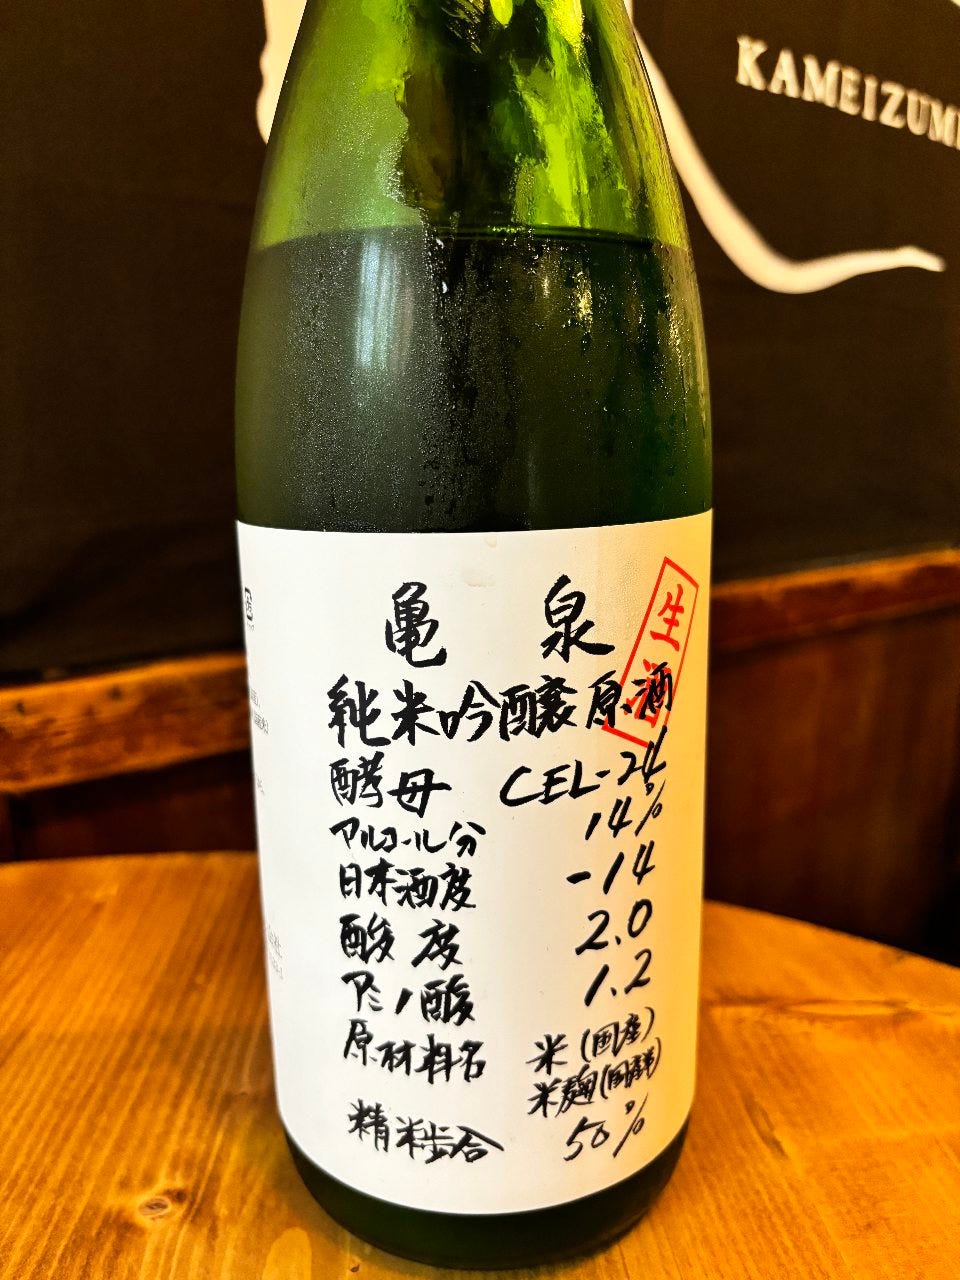 KAMEIZUM
亀泉
生酒
純米吟醸原酒
酵母 CEL-24
アルコール分 14%
日本酒度 -14
酸度 2.0
アミノ酸 1.2
原材料名 米(国産)
米麹(国産米)
精米歩合 50%